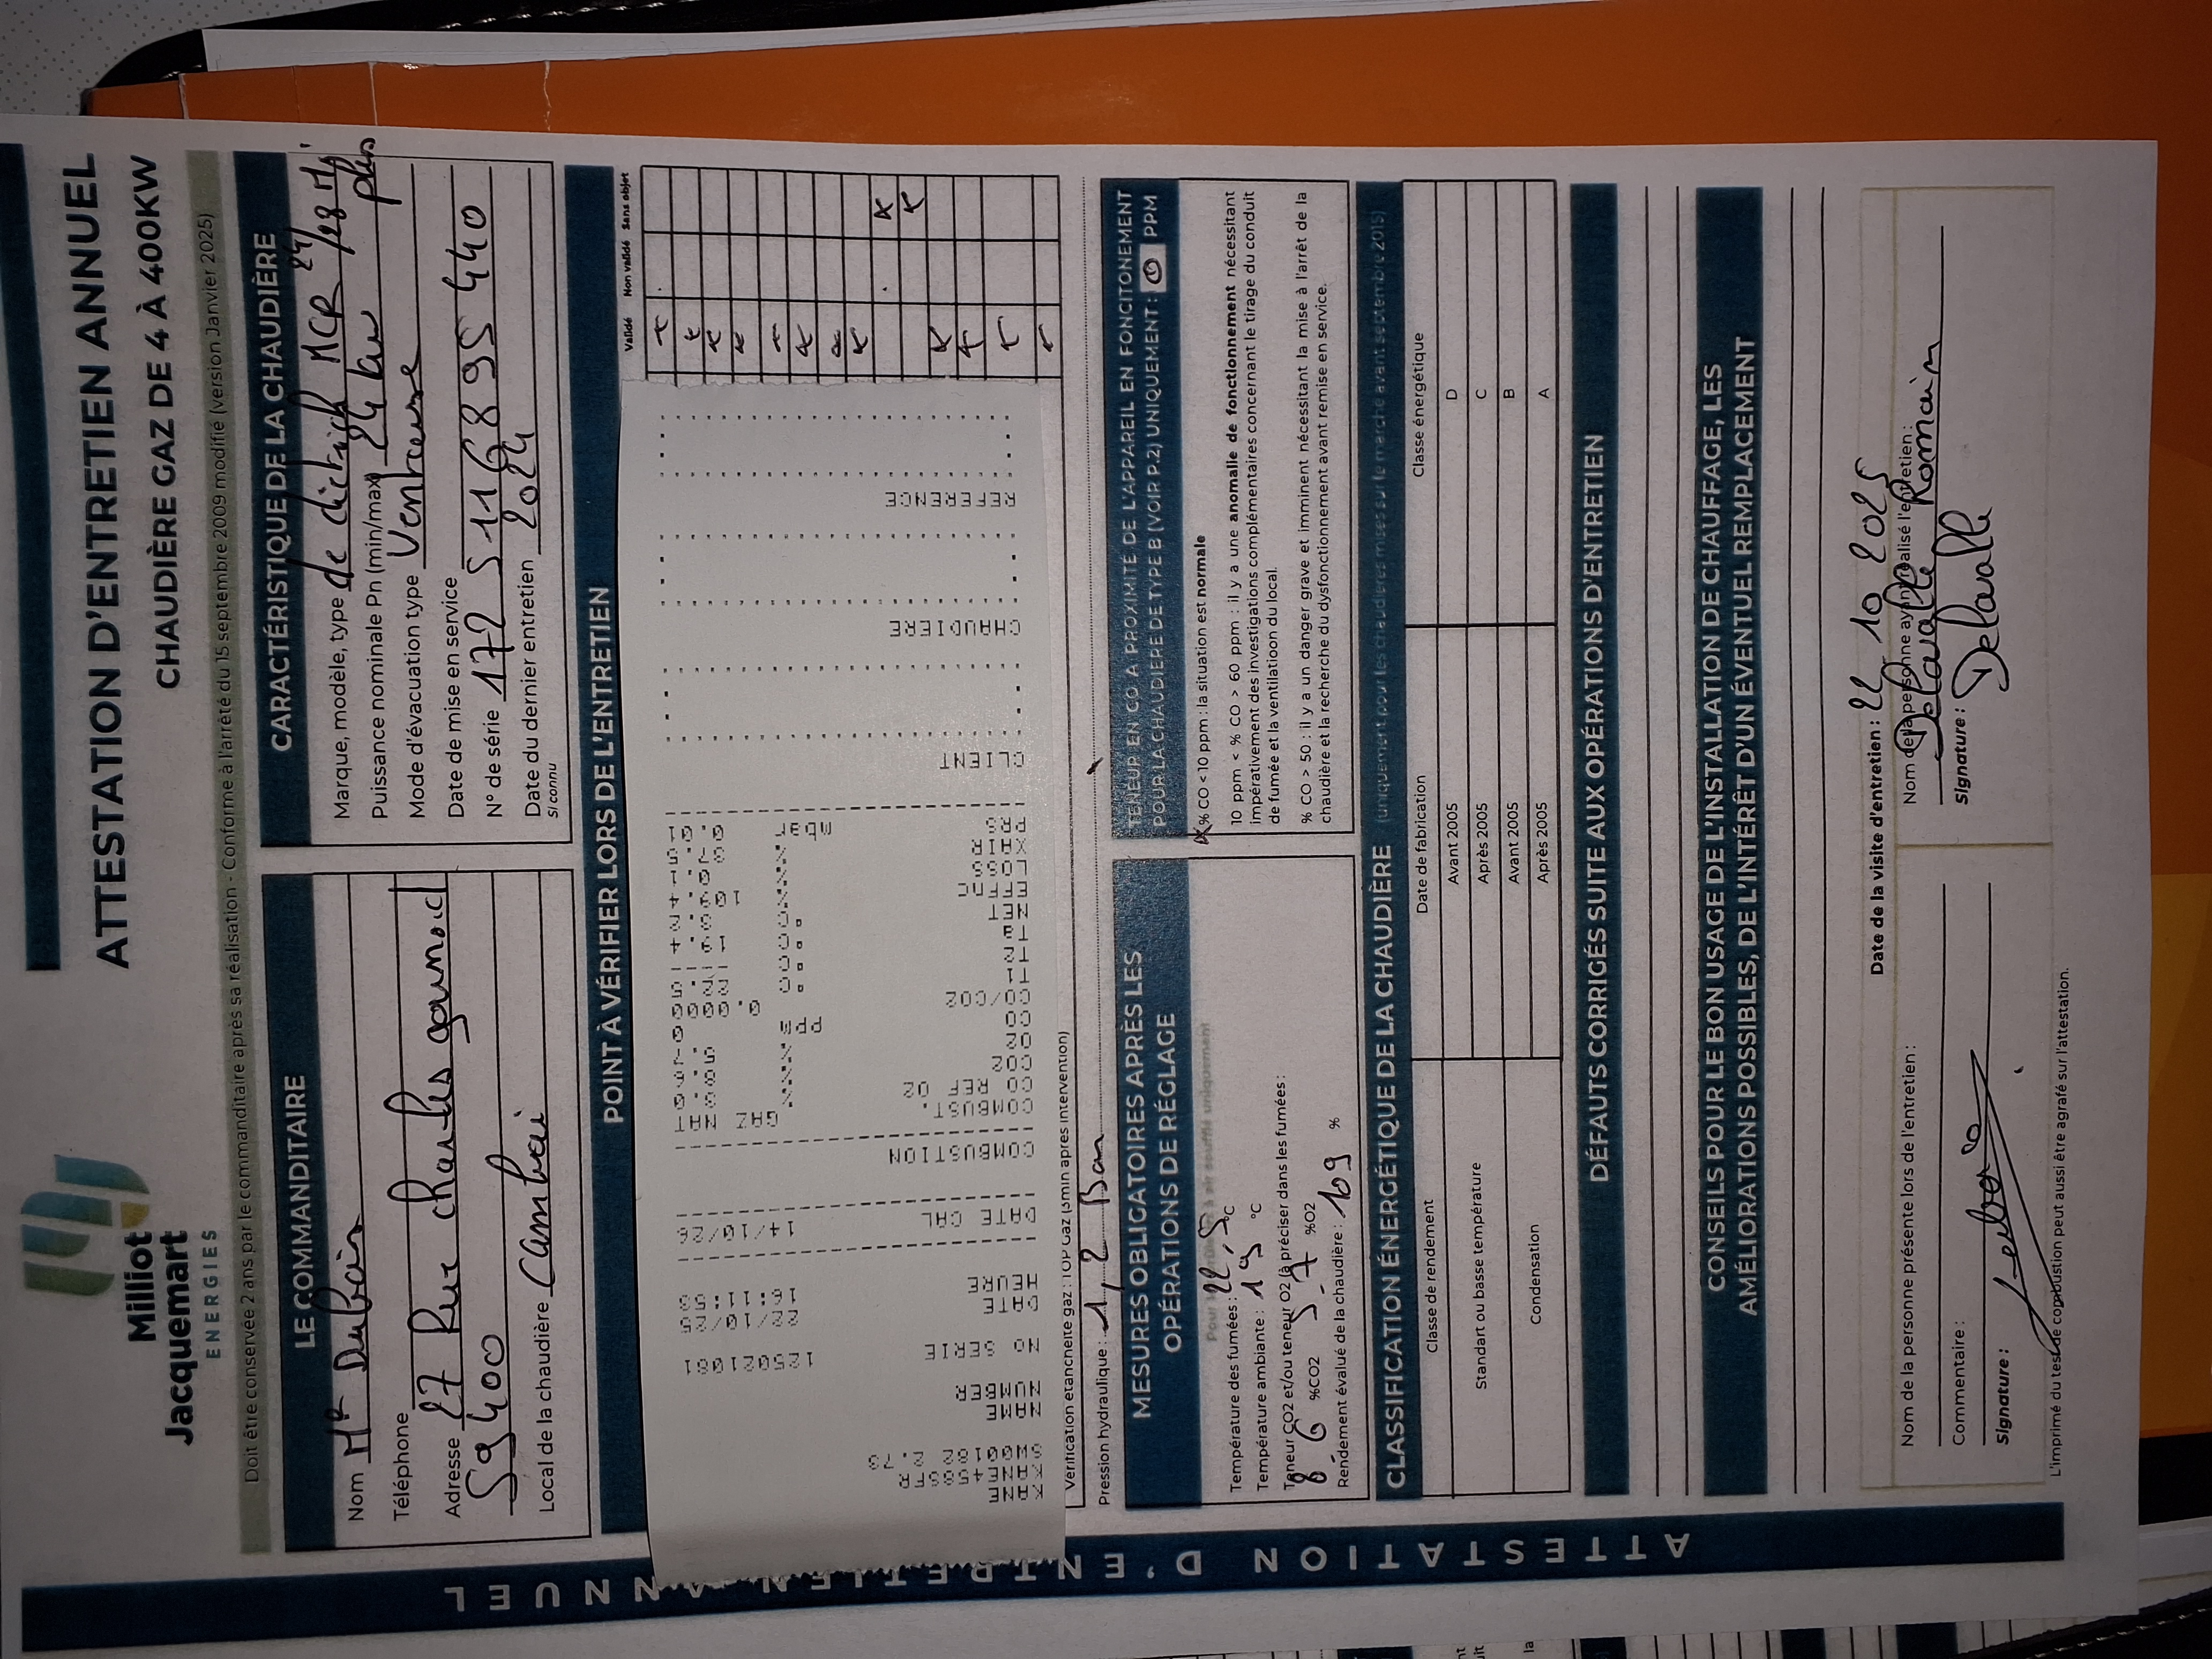 Milliot
Jacquemart
ENERGIES
ATTESTATION D'ENTRETIEN ANNUEL
CHAUDIÈRE GAZ DE 4 À 400KW
Doit être conservée 2 ans par le commanditaire après sa réalisation - Conforme à l'arrêté du 15 septembre 2009 modifié (version Janvier 2025)
LE COMMANDITAIRE
Nom Mr Dubois
Téléphone
Adresse 27 Rue charles gounod
59400
Local de la chaudière Cambrai
CARACTÉRISTIQUE DE LA CHAUDIÈRE
Marque, modèle, type de dietrich MCR 24/28 MI
plus
Puissance nominale Pn (min/max) 24 kw
Mode d'évacuation type Ventouse
Date de mise en service
N° de série 172 51168 95 440
Date du dernier entretien 2024
si connu
POINT À VÉRIFIER LORS DE L'ENTRETIEN
Validé Non validé Sans objet
KANE
KANE458STR
SW00182 2.73
NAME
NUMBER
NO SERIE 125021081
DATE 22/10/25
HEURE 16:11:53
DATE CAL 14/10/26
COMBUSTION
COMBUST. GAZ NAT
CO REF O2
CO2 %
O2 % 5.7
CO ppm 0
CO/CO2 0.0000
T1 °C 22.5
T2 °C
Ta °C 19.4
NET °C
EFFNC %
LOSS %
XAIR %
PRS mbar 0.01
CLIENT
CHAUDIERE
REFERENCE
Vérification étanchéité gaz : TOP Gaz (5min après intervention)
Pression hydraulique : 1,2 Bar
MESURES OBLIGATOIRES APRÈS LES
OPÉRATIONS DE RÉGLAGE
Température des fumées : 22,5 °C
Température ambiante : 19 °C
Teneur CO2 et/ou teneur O2 (à préciser dans les fumées :
8 6 %CO2 5-7 %O2
Rendement évalué de la chaudière : 109 %
TENEUR EN CO A PROXIMITÉ DE L'APPAREIL EN FONCITONEMENT
POUR LA CHAUDIERE DE TYPE B (VOIR P.2) UNIQUEMENT : 0 PPM
% CO < 10 ppm : la situation est normale
10 ppm < % CO > 60 ppm : il y a une anomalie de fonctionnement nécessitant
impérativement des investigations complémentaires concernant le tirage du conduit
de fumée et la ventilatioon du local.
% CO > 50 : il y a un danger grave et imminent nécessitant la mise à l'arrêt de la
chaudière et la recherche du dysfonctionnement avant remise en service.
CLASSIFICATION ÉNERGÉTIQUE DE LA CHAUDIÈRE (uniquement pour les chaudières mises sur le marche avant septembre 2015)
Classe de rendement Date de fabrication Classe énergétique
Standart ou basse température Avant 2005 D
Après 2005 C
Condensation Avant 2005 B
Après 2005 A
DÉFAUTS CORRIGÉS SUITE AUX OPÉRATIONS D'ENTRETIEN
CONSEILS POUR LE BON USAGE DE L'INSTALLATION DE CHAUFFAGE, LES
AMÉLIORATIONS POSSIBLES, DE L'INTÉRÊT D'UN ÉVENTUEL REMPLACEMENT
Date de la visite d'entretien : 22 10 2025
Nom de la personne présente lors de l'entretien :
Commentaire :
Signature :
Nom de la personne ayant réalisé l'entretien :
Delvalle Romain
Signature : Delvalle
L'imprimé du test de combustion peut aussi être agrafé sur l'attestation.
ATTESTATION D'ENTRETIEN ANNUEL